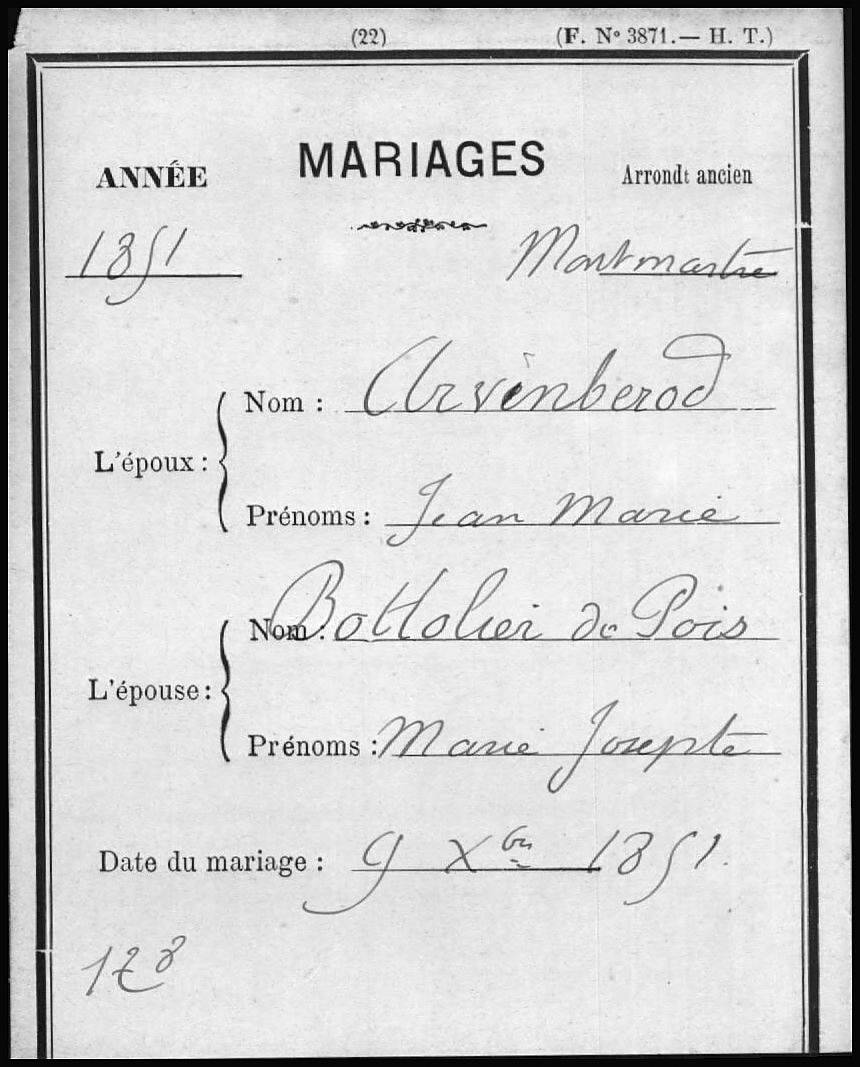 (22) (F. Nº 3871.— H. T.)
ANNÉE MARIAGES Arrondt ancien
1851 Montmartre
L'époux :
Nom : Arvinberod
Prénoms : Jean Marie
L'épouse :
Nom : Bottolier de Pois
Prénoms : Marie Josepte
Date du mariage : 9 Xbre 1851.
128